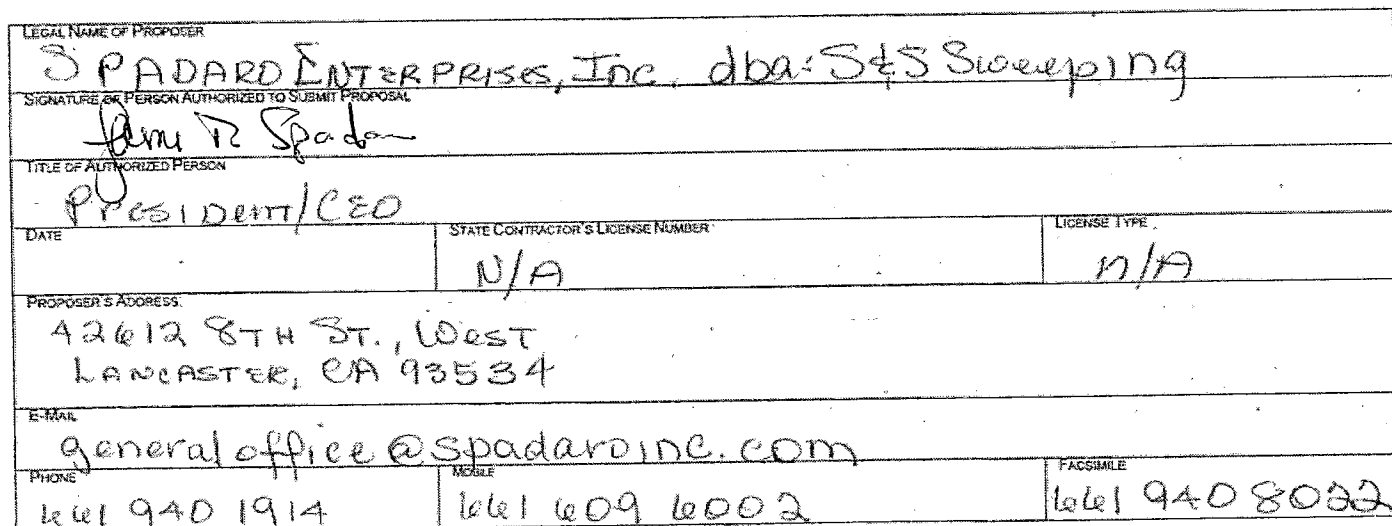 LEGAL NAME OF PROPOSER
SPADARO ENTERPRISES, Inc. dba: S&S Sweeping
SIGNATURE OF PERSON AUTHORIZED TO SUBMIT PROPOSAL
R Spadaro
TITLE OF AUTHORIZED PERSON
President/CEO
DATE
STATE CONTRACTOR'S LICENSE NUMBER
LICENSE TYPE
N/A
n/A
PROPOSER'S ADDRESS:
42612 8TH ST., West
LANCASTER, CA 93534
E-MAIL
generaloffice@spadaroinc.com
PHONE
MOBILE
FACSIMILE
661 940 1914
661 609 6002
661 940 8022